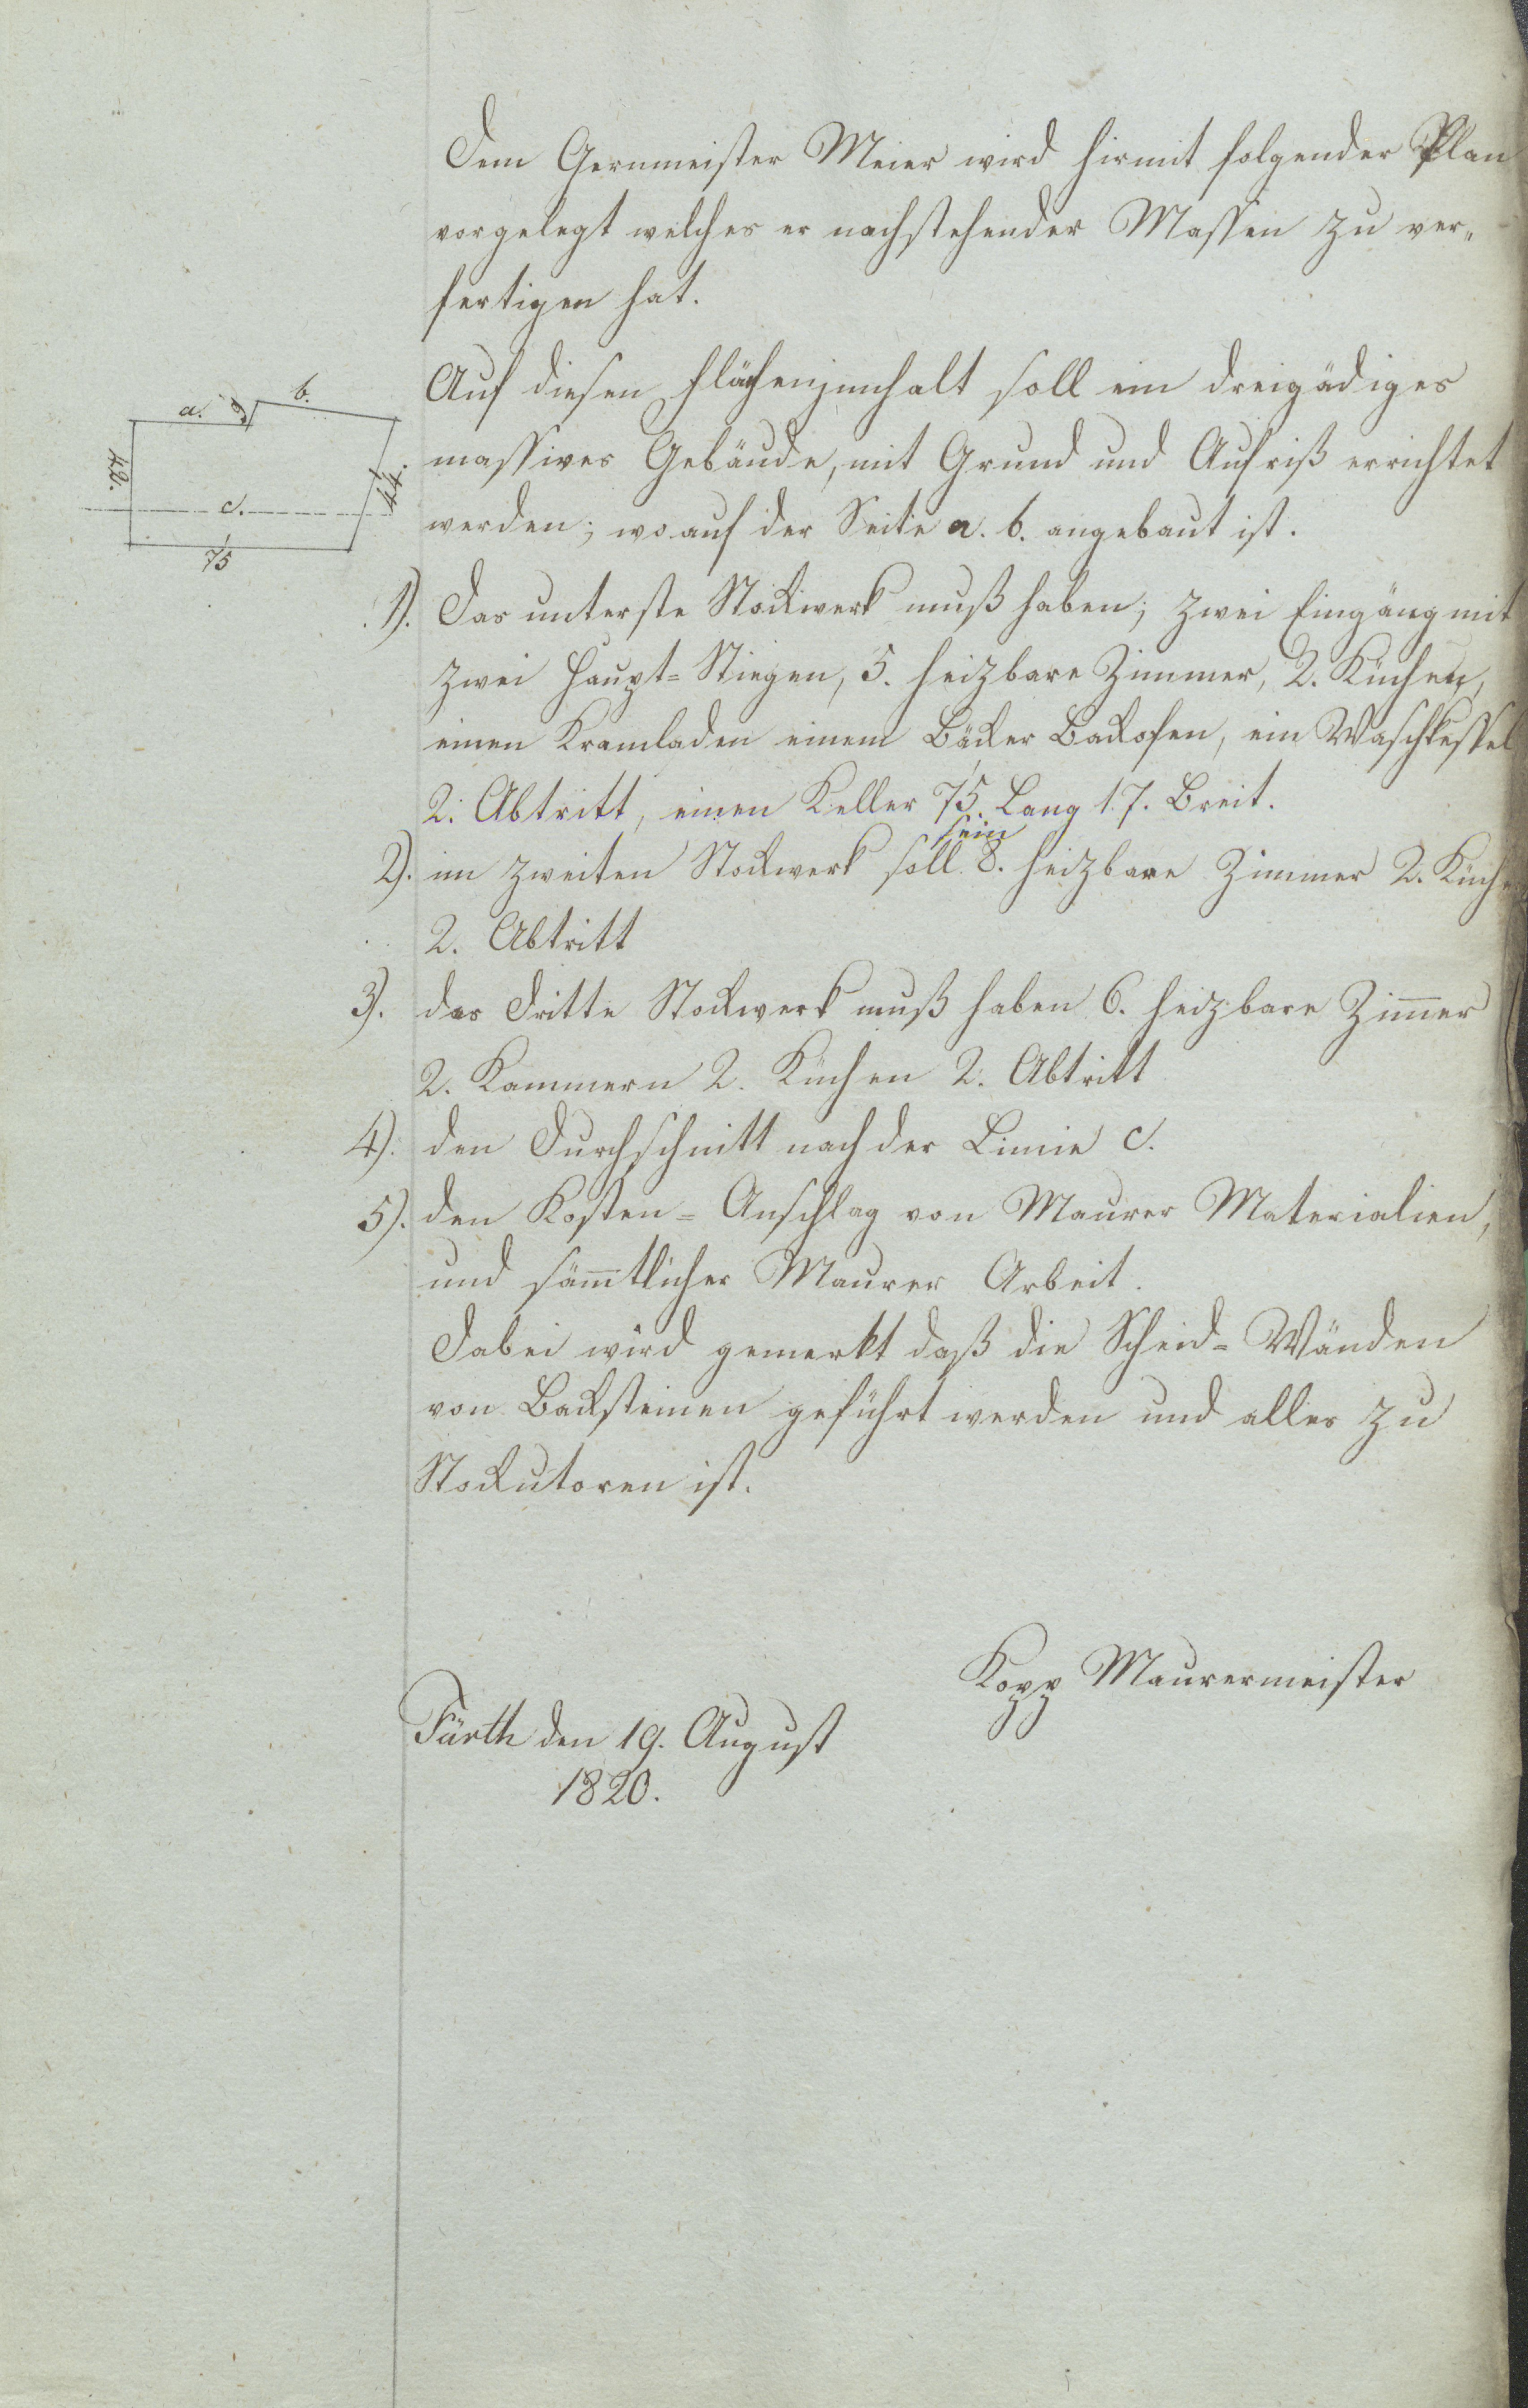 Dem Gernmeister Meier wird hirmit folgender Plan
vorgelegt welches er nachstehender Massen zu ver„
fertigen hat.
a. 9 b.
42.
44.
c.
75
Auf diesen Flächenjnnhalt soll ein dreigädiges
massives Gebäude, mit Grund und Aufriß errichtet
werden; wo auf der Seite a. b. angebaut ist.
1). Das unterste Stockwerk muß haben; zwei Eingäng mit
zwei Haupt=Stiegen, 5. heizbare Zimmer, 2. Küchen,
einen Kramladen einem Bäcker Backofen, ein Waschkessel
2. Abtritt, einen Keller 75. Lang 17. Breit.
2). im zweiten Stockwerk soll sein 8. heizbare Zimmer 2. Küchen
2. Abtritt
3). das Dritte Stockwerk muß haben 6. heizbare Zim̅er
2. Kammern 2. Küchen 2. Abtritt
4). den Durchschnitt nach der Linie c.
5). den Kosten=Anschlag von Maurer Materialien,
und säm̅tlicher Maurer Arbeit.
Dabei wird gemerkt daß die Scheid=Wänden
von Backsteinen geführt werden und alles zu
Stockutoren ist.
Kopp Maurermeister
Fürth den 19. August
1820.